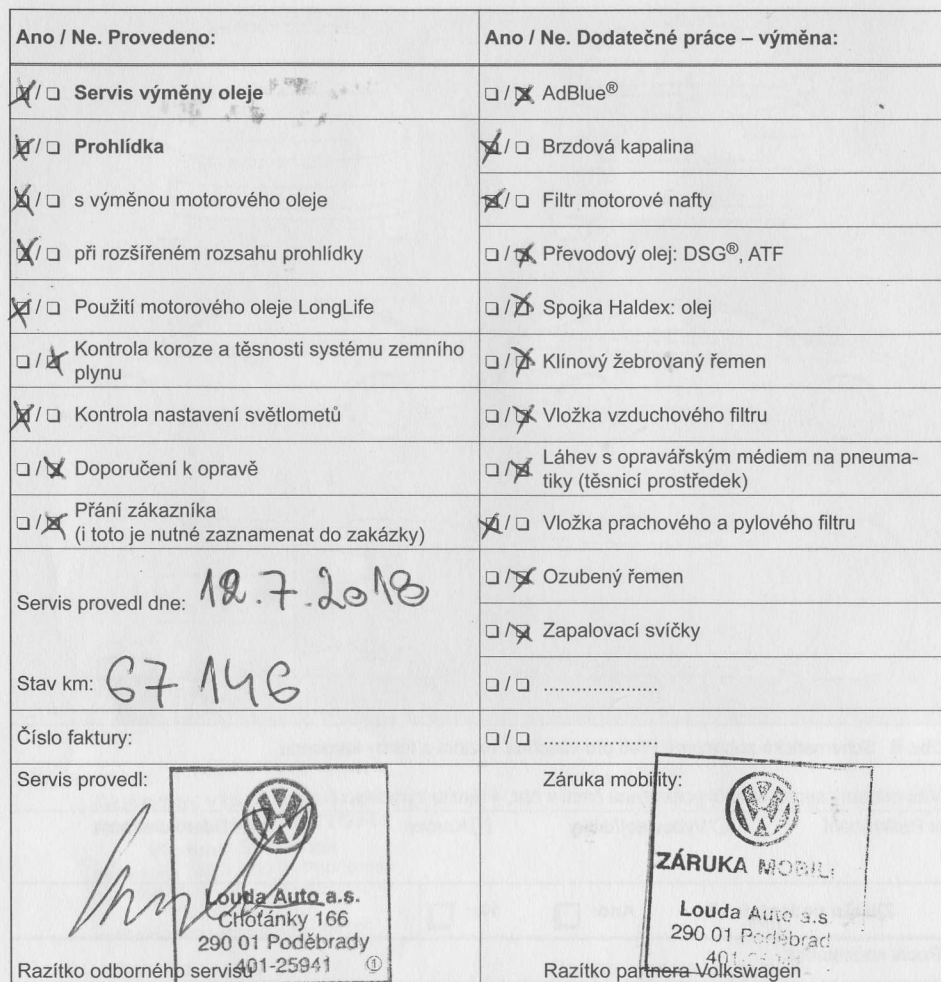 Ano / Ne. Provedeno:
Servis výměny oleje
Prohlídka
s výměnou motorového oleje
při rozšířeném rozsahu prohlídky
Použití motorového oleje LongLife
Kontrola koroze a těsnosti systému zemního
plynu
Kontrola nastavení světlometů
Doporučení k opravě
Přání zákazníka
(i toto je nutné zaznamenat do zakázky)
Servis provedl dne: 12.7.2018
Stav km: 67 146
Číslo faktury:
Servis provedl:
Louda Auto a.s.
Choťánky 166
290 01 Poděbrady
401-25941 1
Razítko odborného servisu
Ano / Ne. Dodatečné práce – výměna:
AdBlue®
Brzdová kapalina
Filtr motorové nafty
Převodový olej: DSG®, ATF
Spojka Haldex: olej
Klínový žebrovaný řemen
Vložka vzduchového filtru
Láhev s opravářským médiem na pneuma-
tiky (těsnicí prostředek)
Vložka prachového a pylového filtru
Ozubený řemen
Zapalovací svíčky
.....................
.....................
Záruka mobility:
ZÁRUKA MOBILI
Louda Auto a.s
290 01 Poděbrad
401
Razítko partnera Volkswagen